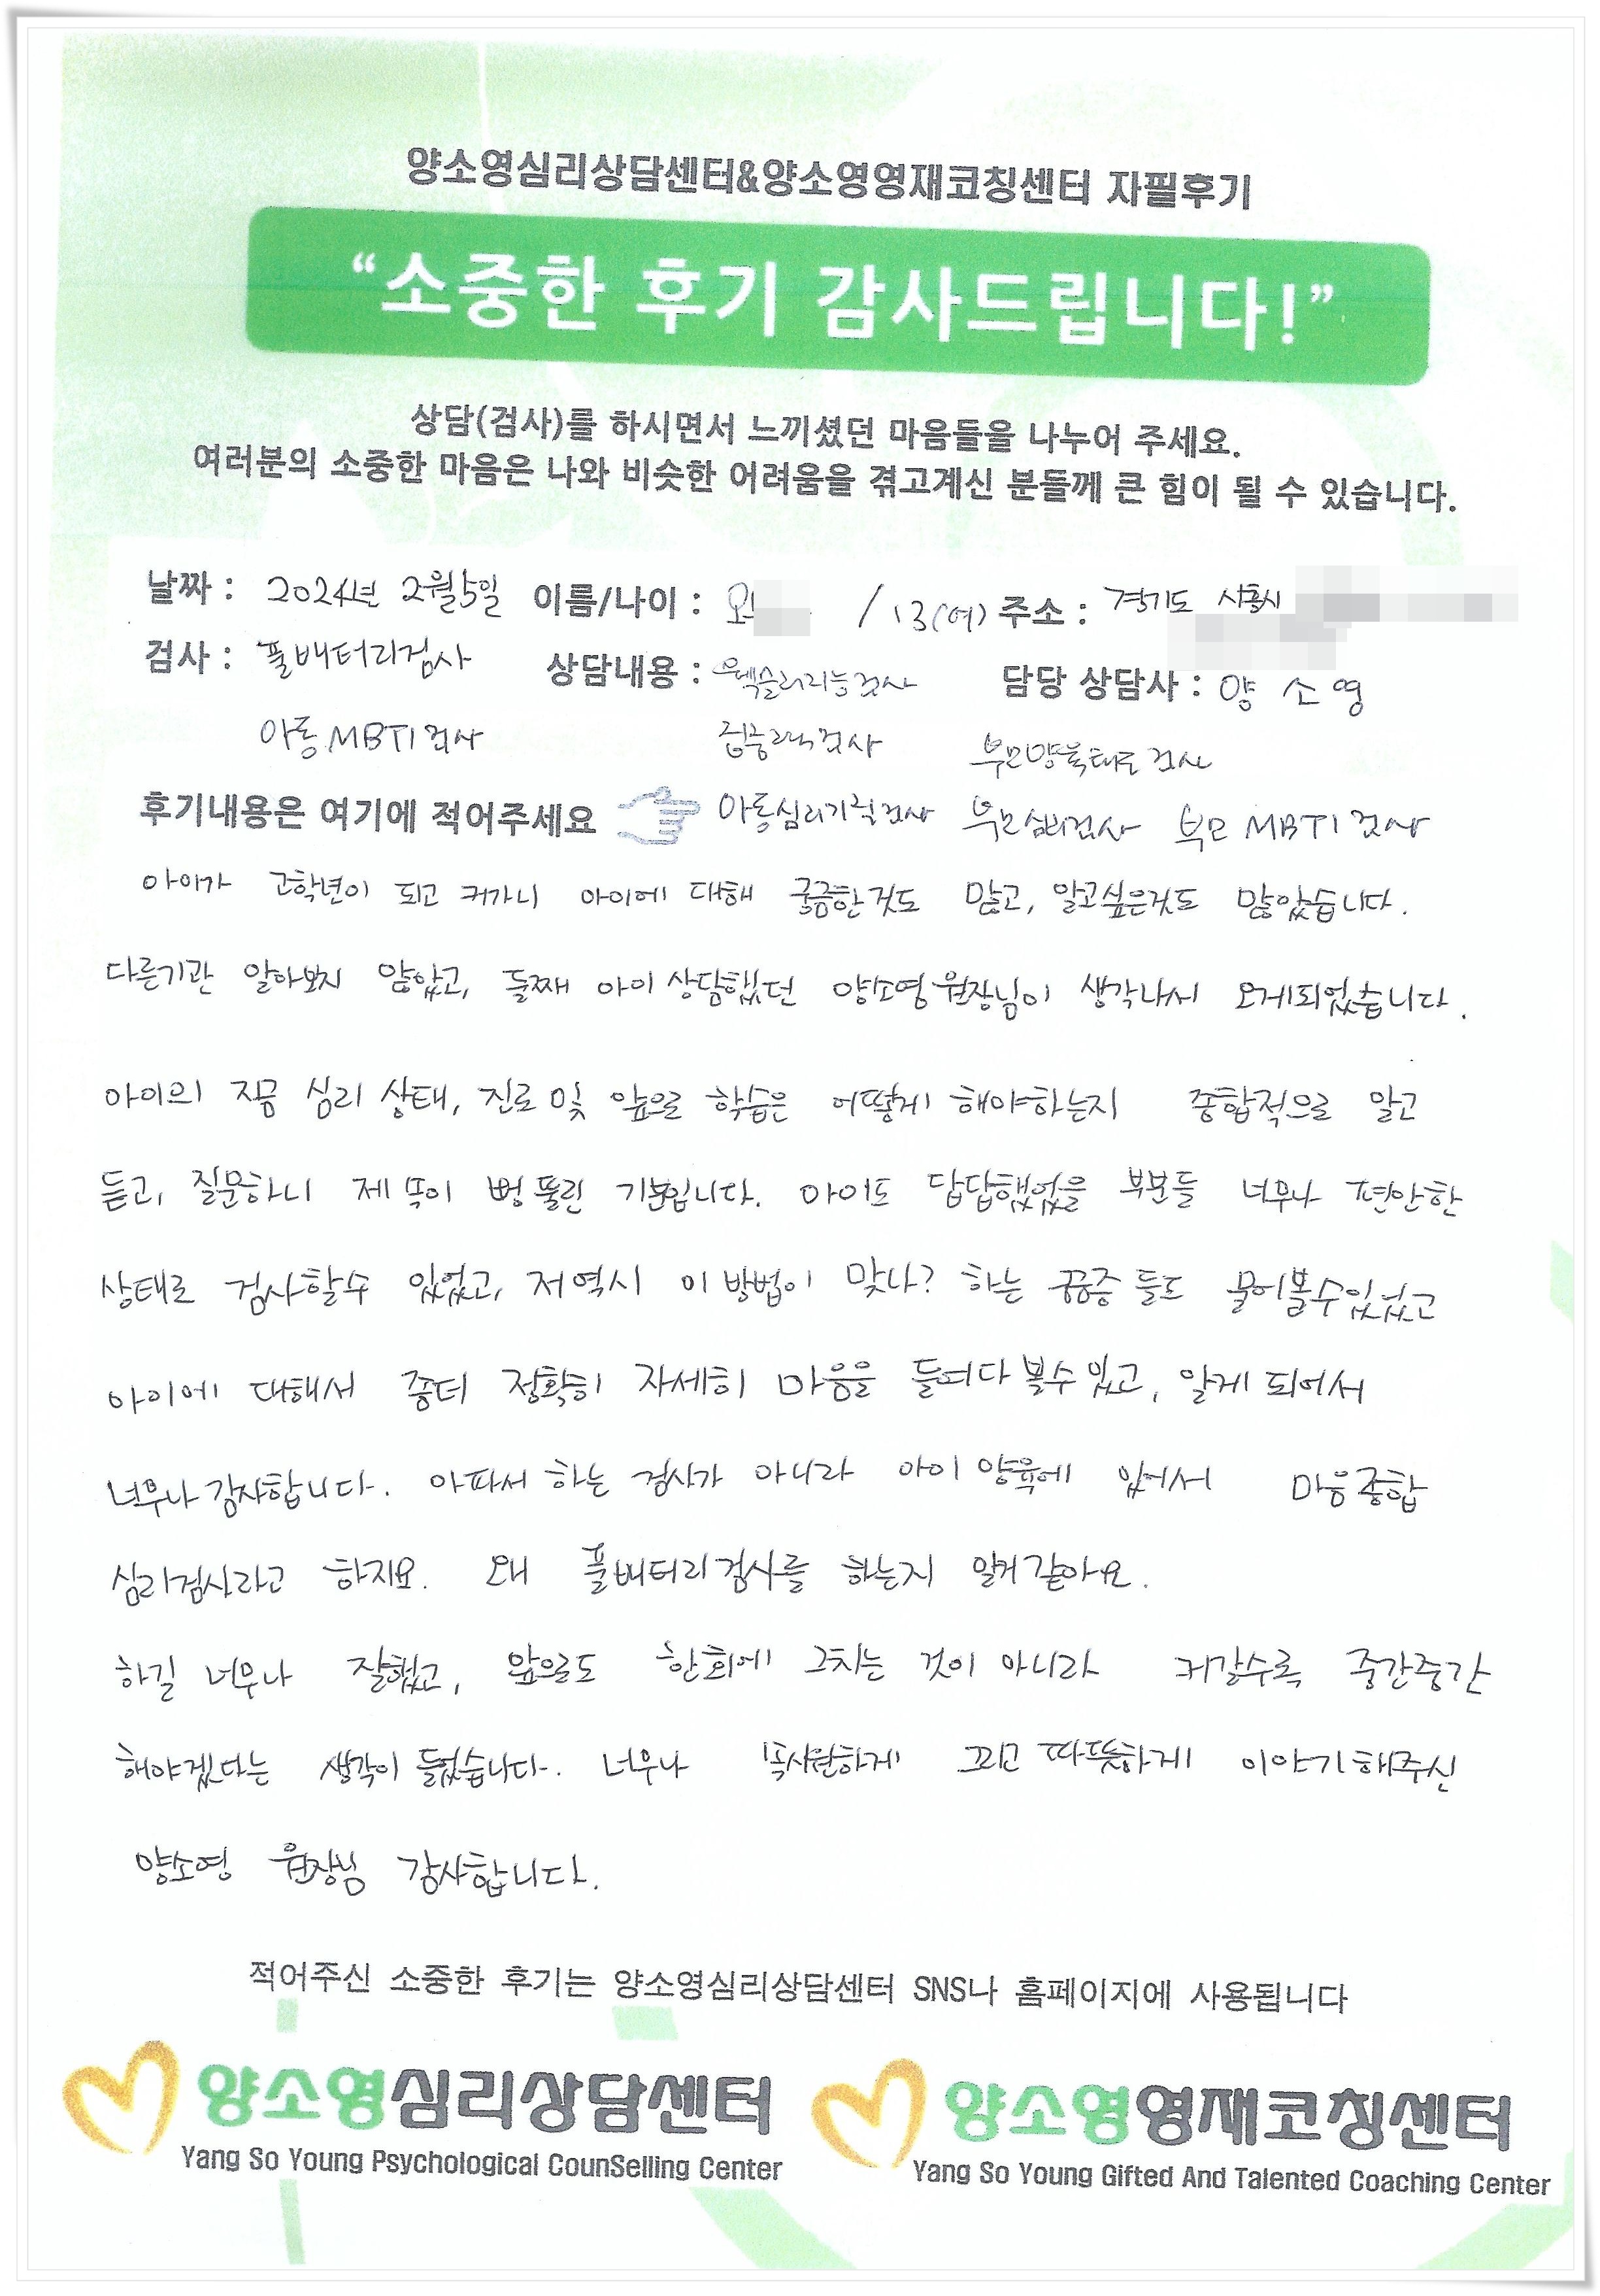 양소영심리상담센터&양소영영재코칭센터 자필후기
“소중한 후기 감사드립니다!”
상담(검사)를 하시면서 느끼셨던 마음들을 나누어 주세요.
여러분의 소중한 마음은 나와 비슷한 어려움을 겪고계신 분들께 큰 힘이 될 수 있습니다.
날짜 : 2024년 2월5일 이름/나이 : / 13(여) 주소 : 경기도 시흥시
검사 : 풀배터리검사 상담내용 : 웩슬러지능검사 담당 상담사 : 양 소 영
아동MBTI검사 집중력검사 부모양육태도검사
후기내용은 여기에 적어주세요 아동심리기질검사 부모심리검사 부모 MBTI 검사
아이가 고학년이 되고 커가니 아이에 대해 궁금한것도 많고, 알고싶은것도 많았습니다.
다른기관 알아보지 않았고, 둘째 아이 상담했던 양소영원장님이 생각나서 오게되었습니다.
아이의 지금 심리 상태, 진로 및 앞으로 학습은 어떻게 해야하는지 종합적으로 알고
듣고, 질문하니 제 속이 뻥 뚫린 기분입니다. 아이도 답답했었을 부분들 너무나 편안한
상태로 검사할수 있었고, 저역시 이 방법이 맞나? 하는 궁금증 들도 물어볼수있었고
아이에 대해서 좀더 정확히 자세히 마음을 들여다 볼수있고, 알게 되어서
너무나 감사합니다. 아파서 하는 검사가 아니라 아이 양육에 있어서 마음종합
심리검사라고 하지요. 왜 풀배터리검사를 하는지 알거같아요.
하길 너무나 잘했고, 앞으로도 한회에 그치는 것이 아니라 커갈수록 중간중간
해야겠다는 생각이 들었습니다. 너무나 '속시원하게' 그리고 따뜻하게 이야기해주신
양소영 원장님 감사합니다.
적어주신 소중한 후기는 양소영심리상담센터 SNS나 홈페이지에 사용됩니다
양소영심리상담센터 양소영영재코칭센터
Yang So Young Psychological CounSelling Center Yang So Young Gifted And Talented Coaching Center